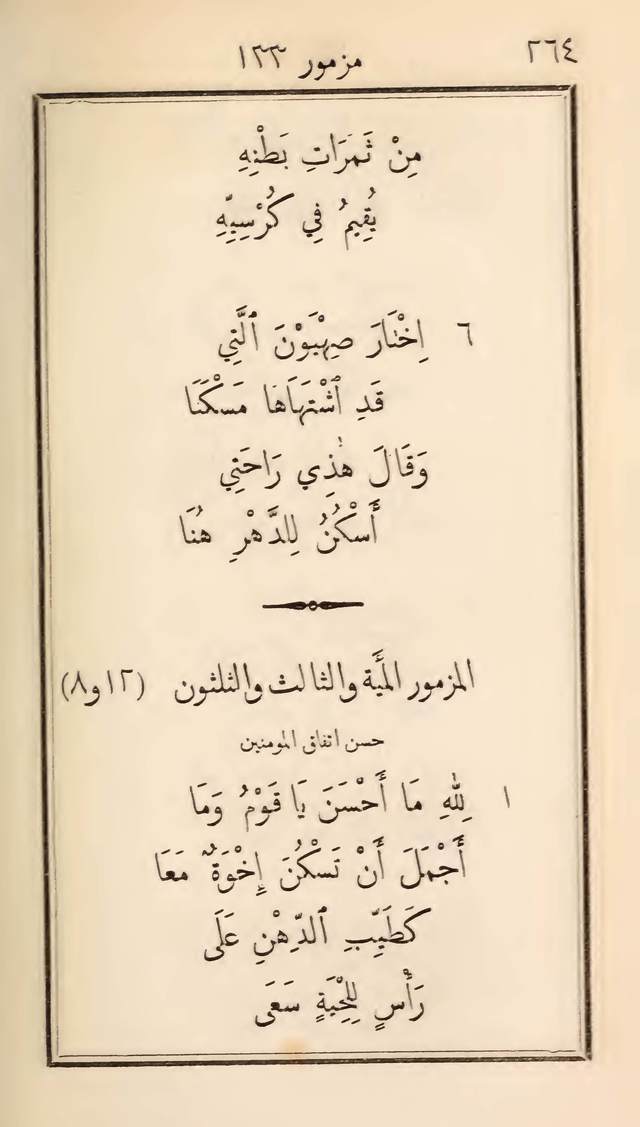 ٢٦٤
مزمور ١٣٣
مِنْ ثَمَرَاتِ بَطْنِهِ
يُقِيمُ فِي كُرْسِيِّهِ
٦ اِخْتَارَ صِهْيَوْنَ ٱلَّتِي
قَدِ ٱشْتَهَاهَا مَسْكَنَا
وَقَالَ هٰذِي رَاحَتِي
أَسْكُنُ لِلدَّهْرِ هُنَا
المزمور المئَة والثالث والثلثون (١٢ و٨)
حسن اتفاق المومنين
١ لِلّٰهِ مَا أَحْسَنَ يَا قَوْمُ وَمَا
أَجْمَلَ أَنْ تَسْكُنَ إِخْوَةٌ مَعَا
كَطَيِّبِ ٱلدِّهْنِ عَلَى
رَأْسٍ لِلِحْيَةٍ سَعَى